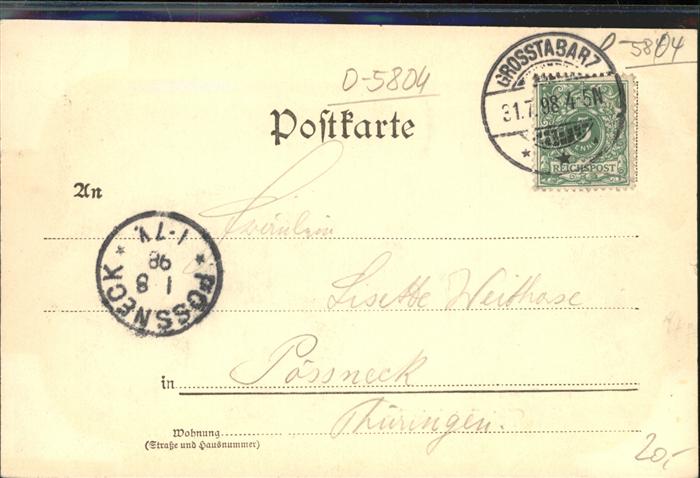 D-5804
D-5804
GROSSTABARZ
31.7.98.4-5N
* *
5
PFENNIG
REICHSPOST
Postkarte
An
Fräulein
PÖSSNECK
1 8
98
1-7V.
* *
Lisette Weithase
in Pössneck
Thüringen.
Wohnung
(Straße und Hausnummer)
20,-